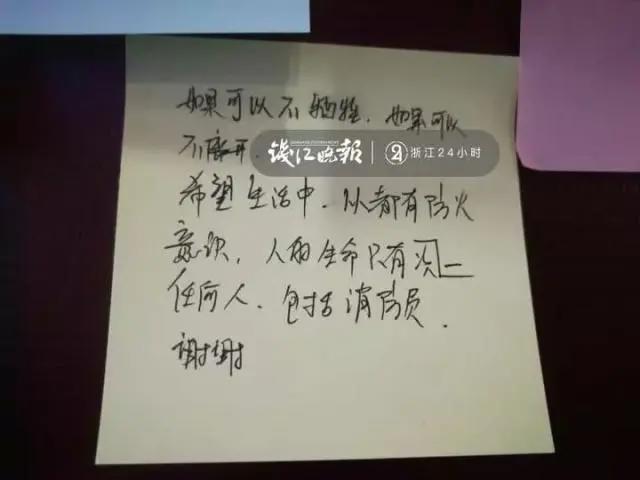 如果可以不牺牲，如果可以
不离开，
钱江晚报 浙江24小时
希望生活中，从都有防火
意识，人的生命只有次一
任何人，包括消防员．
谢谢